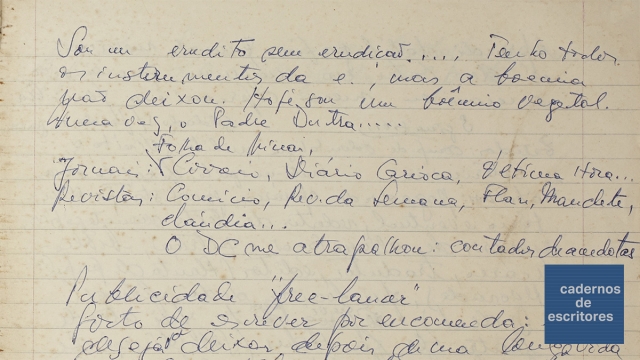 Sou um erudito sem erudição.... Tenho todos
os instrumentos da e., mas a boemia
não deixou. Hoje sou um boêmio vegetal.
uma vez, o Padre Dutra.....
Folha de Minas,
Jornais: Correio, Diário Carioca, Última Hora...
Revistas: Comício, Rev. da Semana, Flan, Manchete,
Claudia...
O DC me atrapalhou: contador de anedotas
Publicidade "free-lancer"
gosto de escrever por encomenda:
deixar depois de uma
cadernos
de
escritores